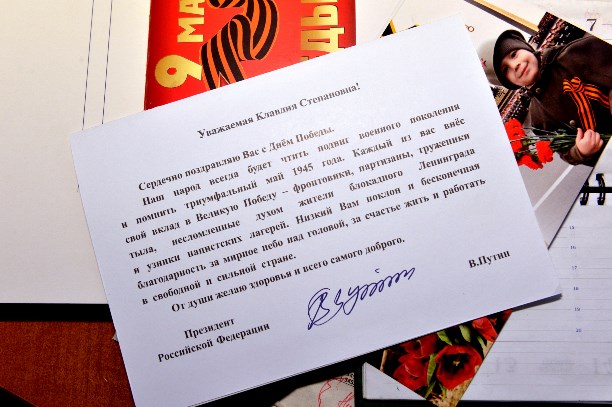 9 МА
ДЫ
7
Уважаемая Клавдия Степановна!
Сердечно поздравляю Вас с Днём Победы.
Наш народ всегда будет чтить подвиг военного поколения
и помнить триумфальный май 1945 года. Каждый из вас внёс
свой вклад в Великую Победу – фронтовики, партизаны, труженики
тыла, несломленные духом жители блокадного Ленинграда
и узники нацистских лагерей. Низкий Вам поклон и бесконечная
благодарность за мирное небо над головой, за счастье жить и работать
в свободной и сильной стране.
От души желаю здоровья и всего самого доброго.
Президент
Российской Федерации
В.Путин